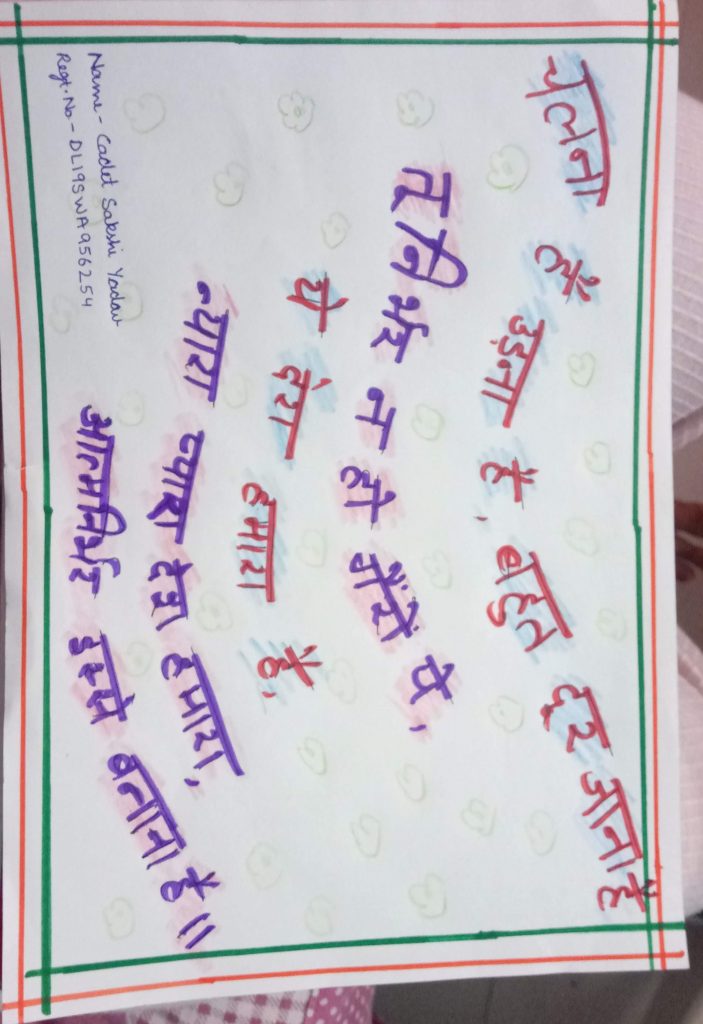 चलना है उड़ना है, बहुत दूर जाना है
तू निर्भर न हो गैरों पे,
ये देश हमारा है,
न्यारा प्यारा देश हमारा,
आत्मनिर्भर इस्से बनाना है॥
Name - Cadet Sakshi Yadav
Regt. No - DL19SWA956254